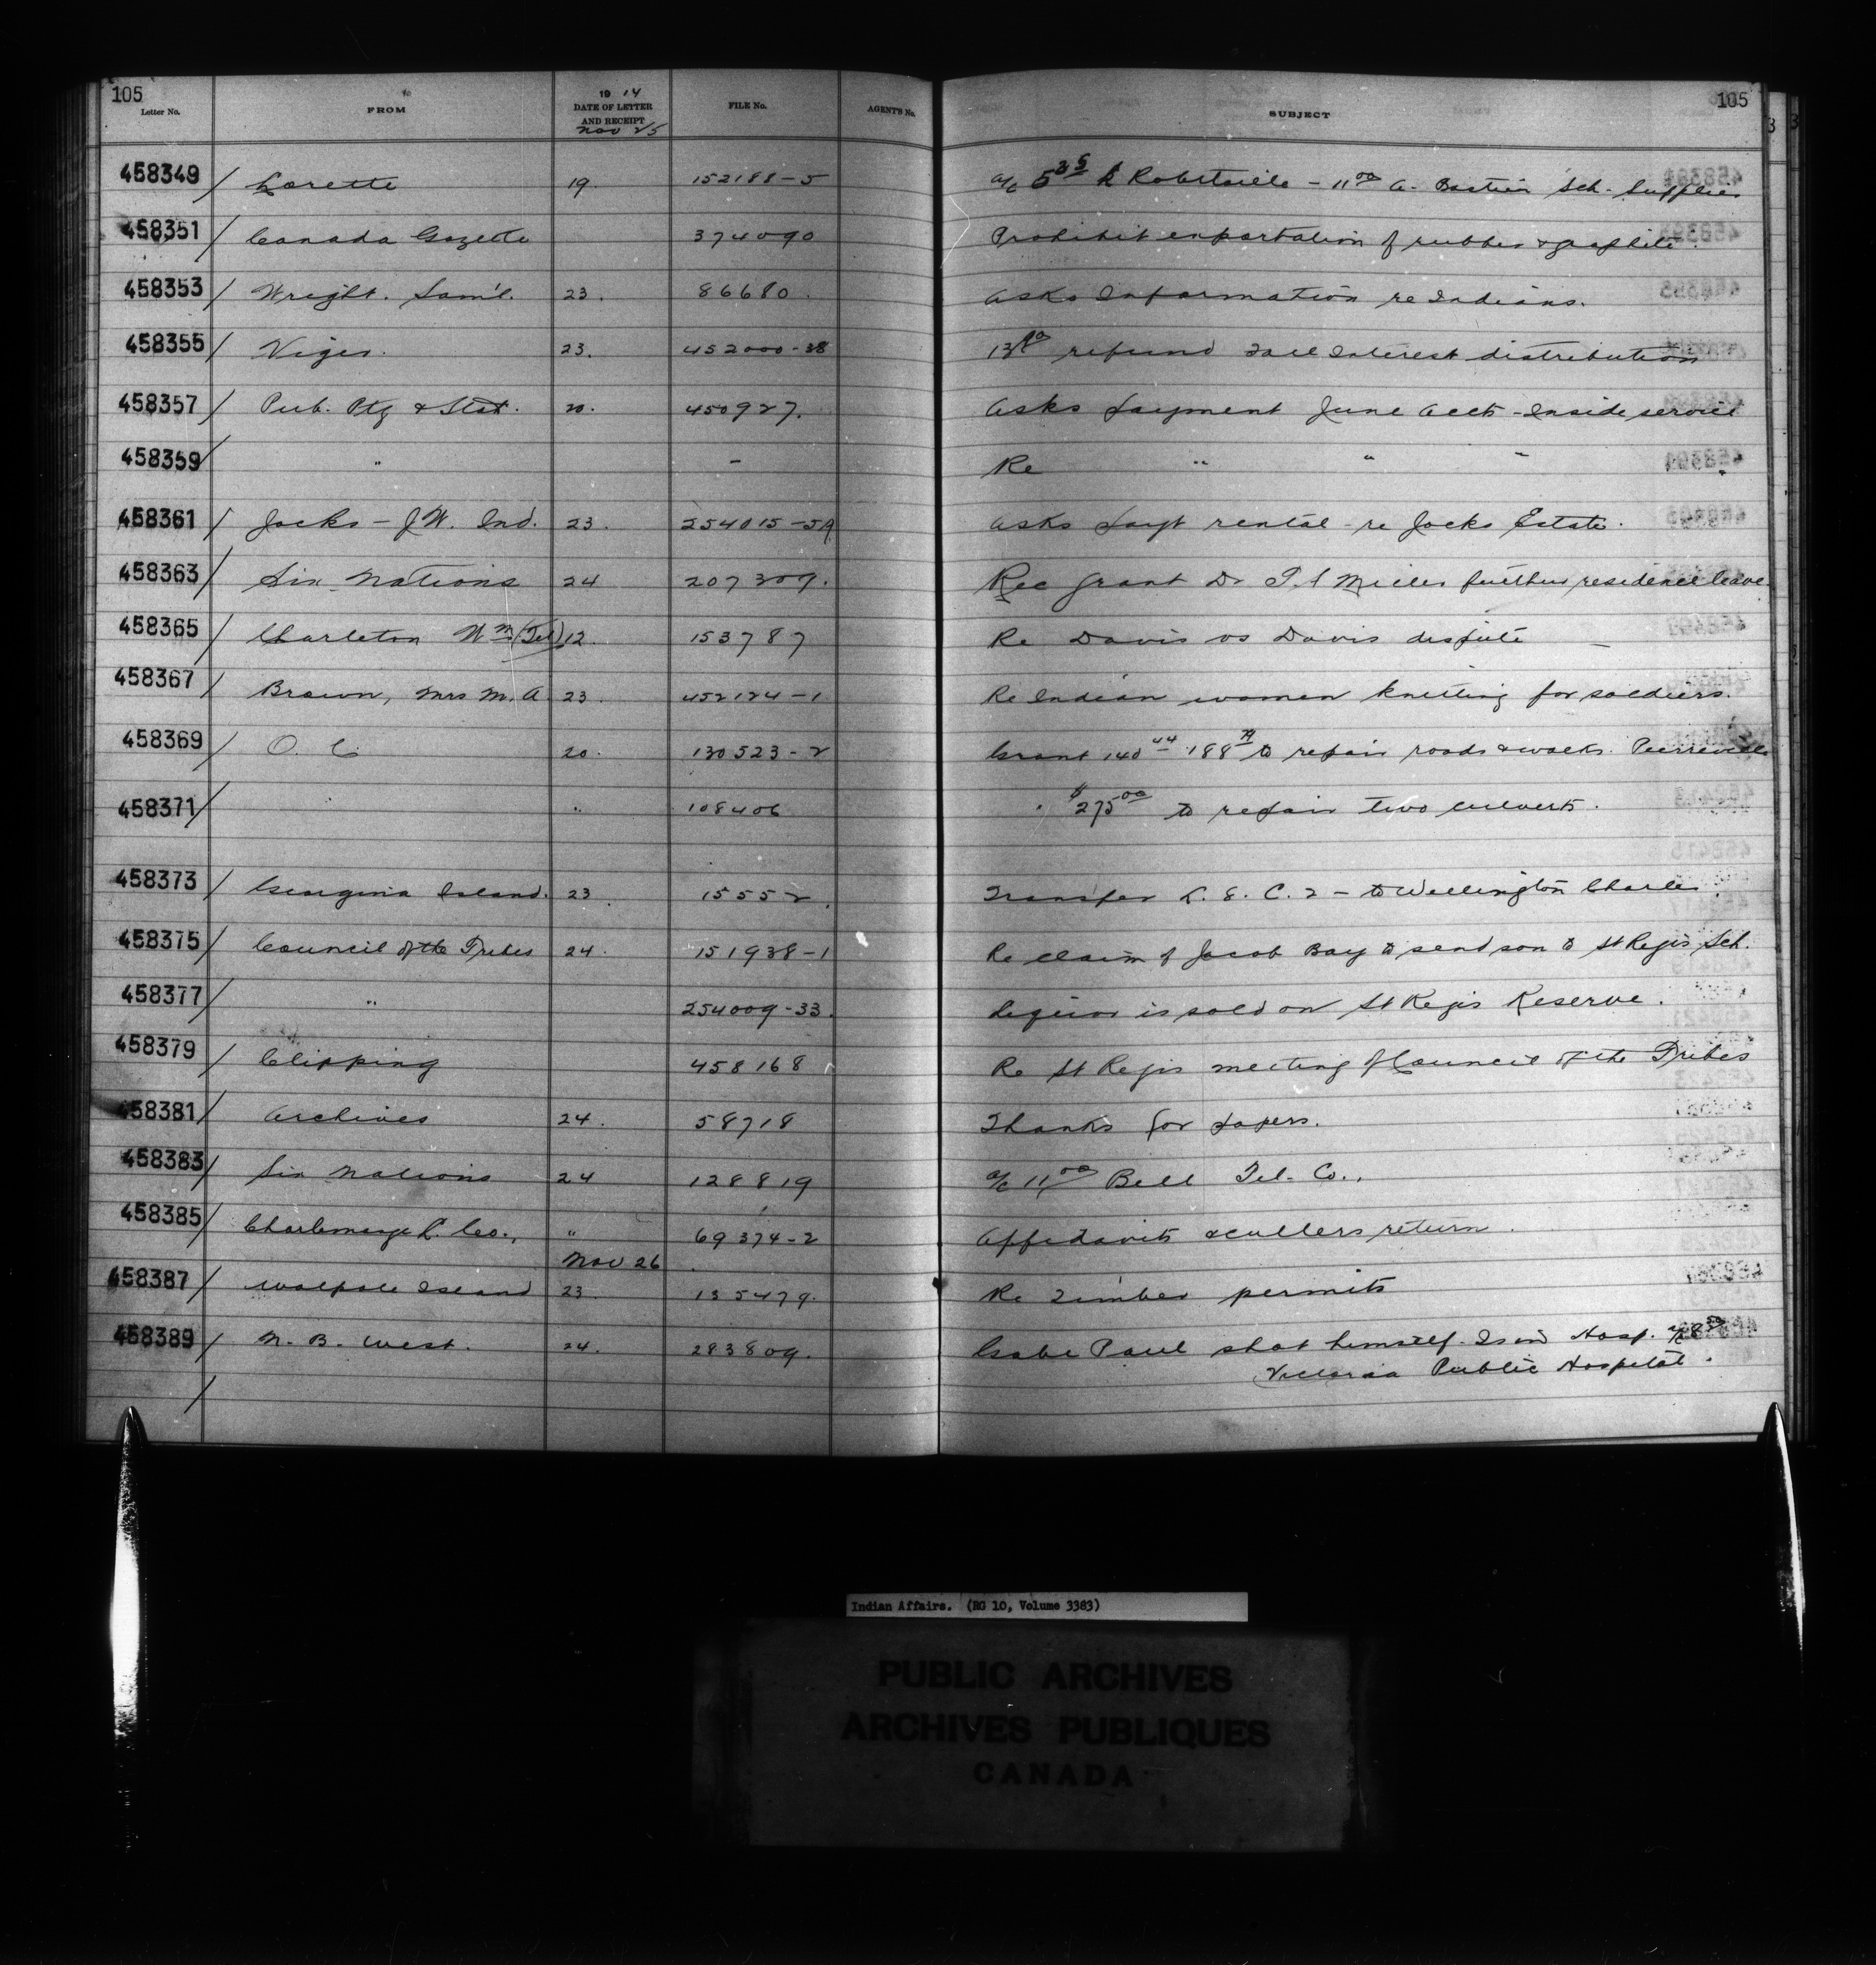 105 105
Letter No. FROM 19 14 DATE OF LETTER AND RECEIPT FILE No. AGENT'S No. SUBJECT
Nov 25
458349 / Lorette 19. 152188-5 a/c 5 25 Robitaille - 11 00 A. Bastien Sch. Supplies
458351 / Canada Gazette 374090 Prohibit exportation of rubber & graphite.
458353 / Wright. Saml. 23. 86680. Asks Information re Indians.
458355 / Viger. 23. 452000-38 refund Fall Interest distribution
458357 / Pub. Ptg & Stat. 20. 450927. Asks payment June accts - Inside service
458359 / " - Re " " "
458361 / Jocks - J.W. Ind. 23. 254015-5A Asks payt rental - re Jocks Estate.
458363 / Six Nations 24 207309. Rec grant Dr Miller further residence leave
458365 / Charleton Wm (Tel) 12. 153787 Re Davis vs Davis dispute -
458367 / Brown, Mrs M. A. 23. 452124-1 Re Indian women knitting for soldiers.
458369 / O. C. 20. 130523-2 Grant 140 44 188 to repair roads & walks. Pierreville
458371 / " " 108406 " $275 00 to repair two culverts.
458373 / Georgina Island. 23. 15552. Transfer L. E. C. 2 - to Wellington Charles.
458375 / Council of the Tribes 24. 151938-1 Re claim of Jacob Bay to send son to St Regis Sch.
458377 / " 254009-33. Liquor is sold on St Regis Reserve.
458379 / Clipping 458168 Re St Regis meeting of Council of the Tribes
458381 / Archives 24. 58718 Thanks for papers.
458383 / Six Nations 24 128819 a/c 11 00 Bell Tel. Co.,
458385 / Charlemange L. Co., " 69374-2 Affidavits & cullers return.
Nov 26
458387 / Walpole Island 23. 135479. Re Timber permits
458389 / N. B. West. 24. 283809. Gabe Paul shot himself. Is in Hosp. a/c 8 50
Victoria Public Hospital.
/
Indian Affairs. (RG 10, Volume 3383)
PUBLIC ARCHIVES
ARCHIVES PUBLIQUES
CANADA